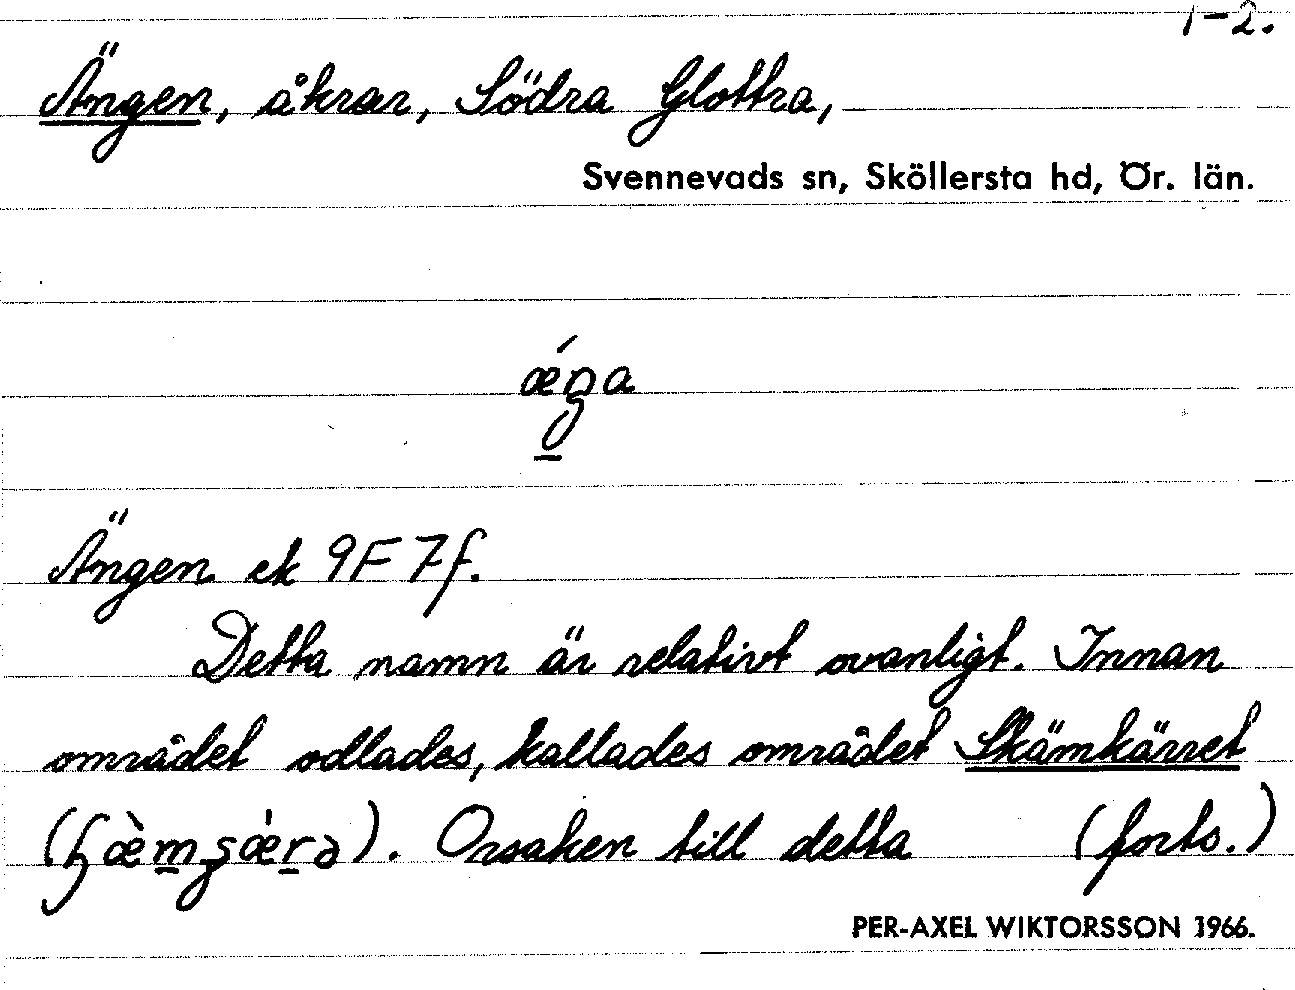 1-2.
Ängen, åkrar, Södra Glottra,
Svennevads sn, Sköllersta hd, Ör. län.
Ängen ek 9F7f.
Detta namn är relativt ovanligt. Innan
området odlades, kallades området Skämkärret
Orsaken till detta (forts.)
PER-AXEL WIKTORSSON 1966.